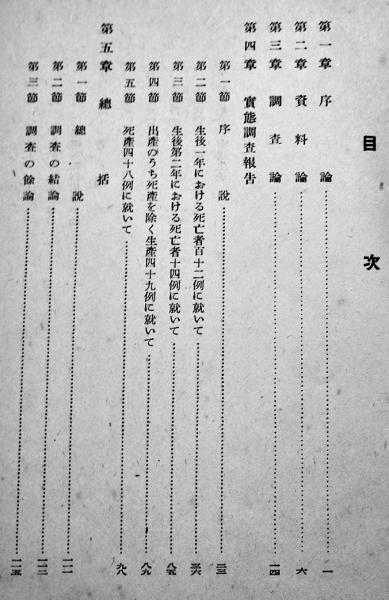 目次
第一章 序論 一
第二章 資料論 六
第三章 調査論 一四
第四章 實態調査報告
第一節 序説 三三
第二節 生後一年における死亡者百十二例に就いて 三六
第三節 生後第二年における死亡者十四例に就いて 八五
第四節 出産のうち死産を除く生産四十九例に就いて 八九
第五節 死産四十八例に就いて 九八
第五章 總括
第一節 總説
第二節 調査の結論
第三節 調査の餘論